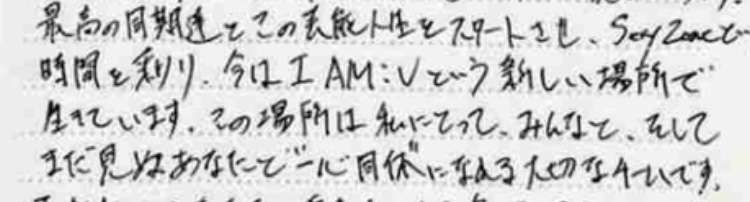 最高の同期達とこの芸能人生をスタートさせ、SexyZoneで
時間を刻り、今はI AM:Vという新しい場所で
生きています。この場所は私にとって、みんなと、そして
まだ見ぬあなたと"一心同体"になれる大切なチームです。